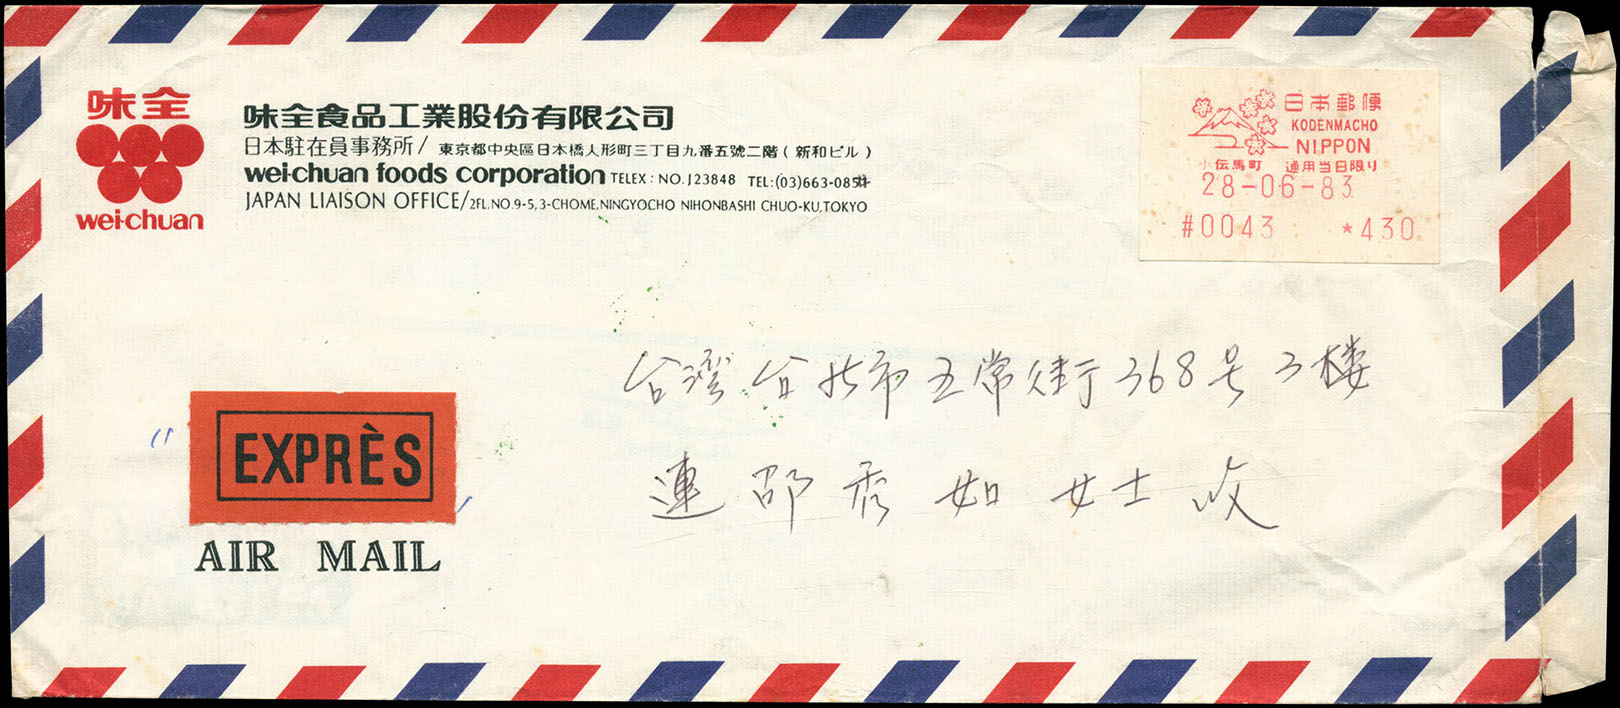 味全
wei-chuan
味全食品工業股份有限公司
日本駐在員事務所/ 東京都中央區日本橋人形町三丁目九番五號二階(新和ビル)
wei-chuan foods corporation TELEX: NO. J23848 TEL:(03)663-085
JAPAN LIAISON OFFICE/2FL.NO.9-5,3-CHOME,NINGYOCHO NIHONBASHI CHUO-KU,TOKYO
日本郵便
KODENMACHO
NIPPON
小伝馬町 通用当日限り
28-06-83
#0043 *430
台湾台北市五常街368号3楼
連邵秀如女士收
EXPRÈS
AIR MAIL